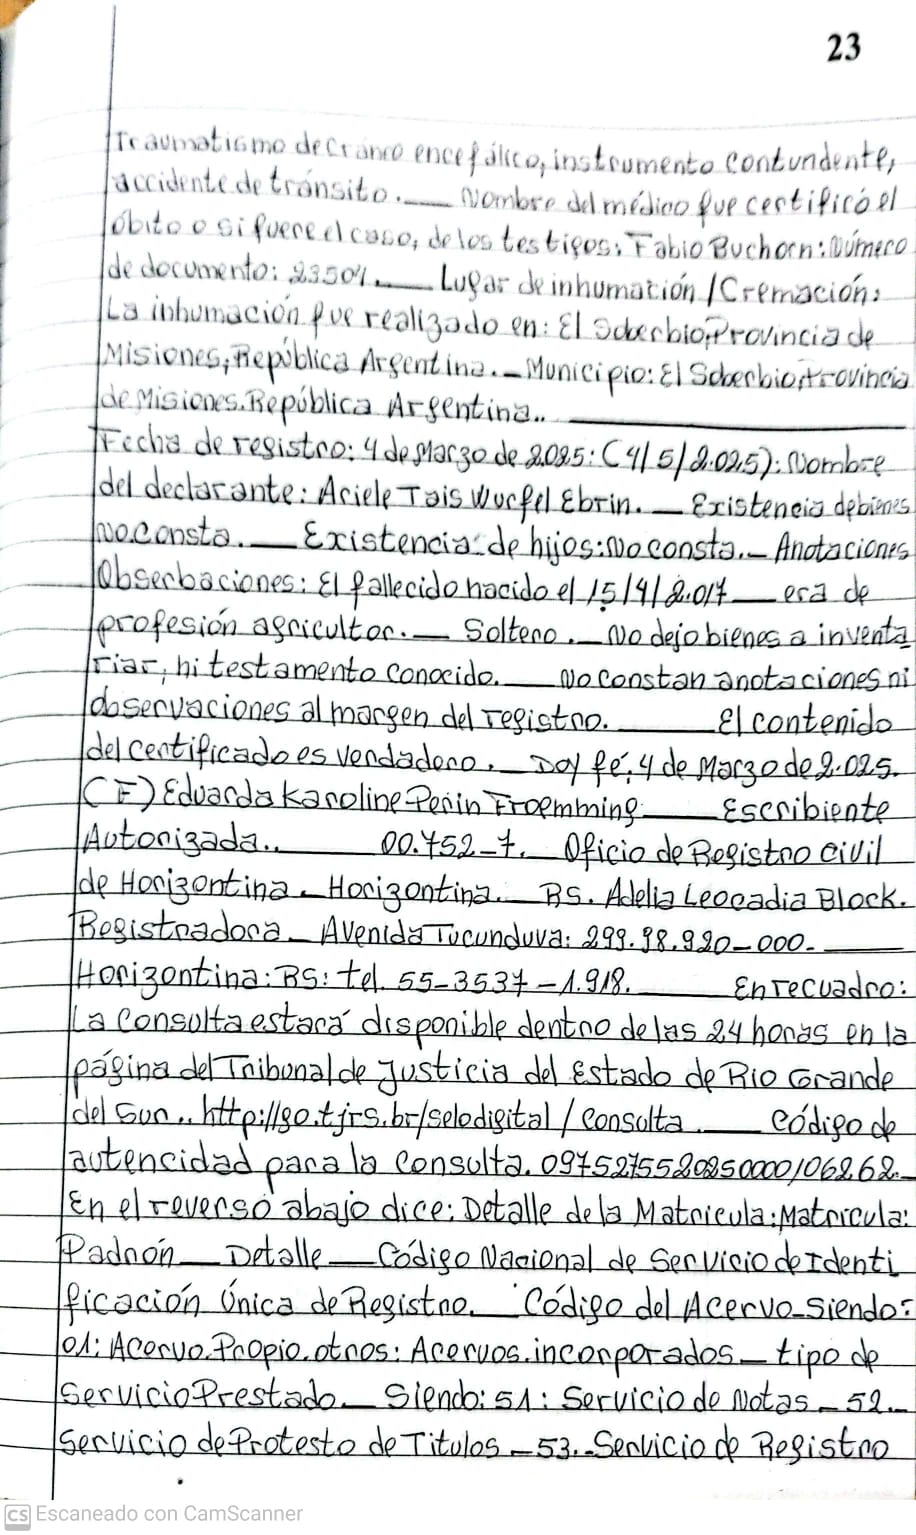 23
Traumatismo de Cráneo encefálico, instrumento contundente,
accidente de tránsito.__ Nombre del médico que certificó el
óbito o si fuere el caso, de los testigos: Fabio Buchorn: Número
de documento: 23504.__ Lugar de inhumación / Cremación:
La inhumación que realizado en: El Soberbio, Provincia de
Misiones, República Argentina._ Municipio: El Soberbio, Provincia
de Misiones. República Argentina..____
Fecha de registro: 4 de Marzo de 2.025: (4/5/2.025): Nombre
del declarante: Aciele Tais Wurfel Ebrin.__ Existencia de bienes
No consta.__ Existencia de hijos: No consta._ Anotaciones
Obserbaciones: El fallecido nacido el 15/4/2.017__ era de
profesión agricultor.__ Soltero.__ No dejo bienes a inventa
riar, ni testamento conocido.__ No constan anotaciones ni
observaciones al margen del registro.__ El contenido
del certificado es verdadero._ Doy fé, 4 de Marzo de 2.025.
(F) Eduarda Karoline Perin Froemming__ Escribiente
Autorizada..__ 00.752-7._ Oficio de Registro civil
de Horizontina. Horizontina._ RS. Adelia Leocadia Block.
Registradora_ Avenida Tucunduva: 299.98.920-000.__
Horizontina: RS: tel. 55-3537-1.918.__ En recuadro:
La Consulta estará disponible dentro de las 24 horas en la
página del Tribunal de Justicia del Estado de Rio Grande
del Sur.. http://go.tjrs.br/selodigital/consulta__ Código de
autencidad para la consulta. 0975275520250000106262._
En el reverso abajo dice: Detalle de la Matricula: Matrícula:
Padrón__ Detalle__ Código Nacional de Servicio de Identi
ficación Única de Registro._ Código del Acervo_Siendo:
01: Acervo.Propio.otros: Acervos.incorporados_ tipo de
Servicio Prestado._ Siendo: 51: Servicio de Notas_52._
Servicio de Protesto de Titulos_53._Servicio de Registro
CS Escaneado con CamScanner